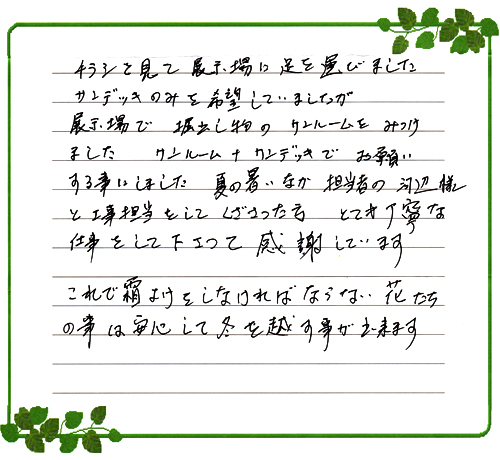 チラシを見て展示場に足を運びました
サンデッキのみを希望していましたが
展示場で 掘出し物の サンルームを みつけ
ました サンルーム+サンデッキで お願い
する事にしました 夏の暑いなか 担当者の 河辺様
と工事担当をして くださった方 とても丁寧な
仕事をして下さって 感謝しています
これで霜よけをしなければならない 花たち
の事は安心して冬を越す事が出来ます